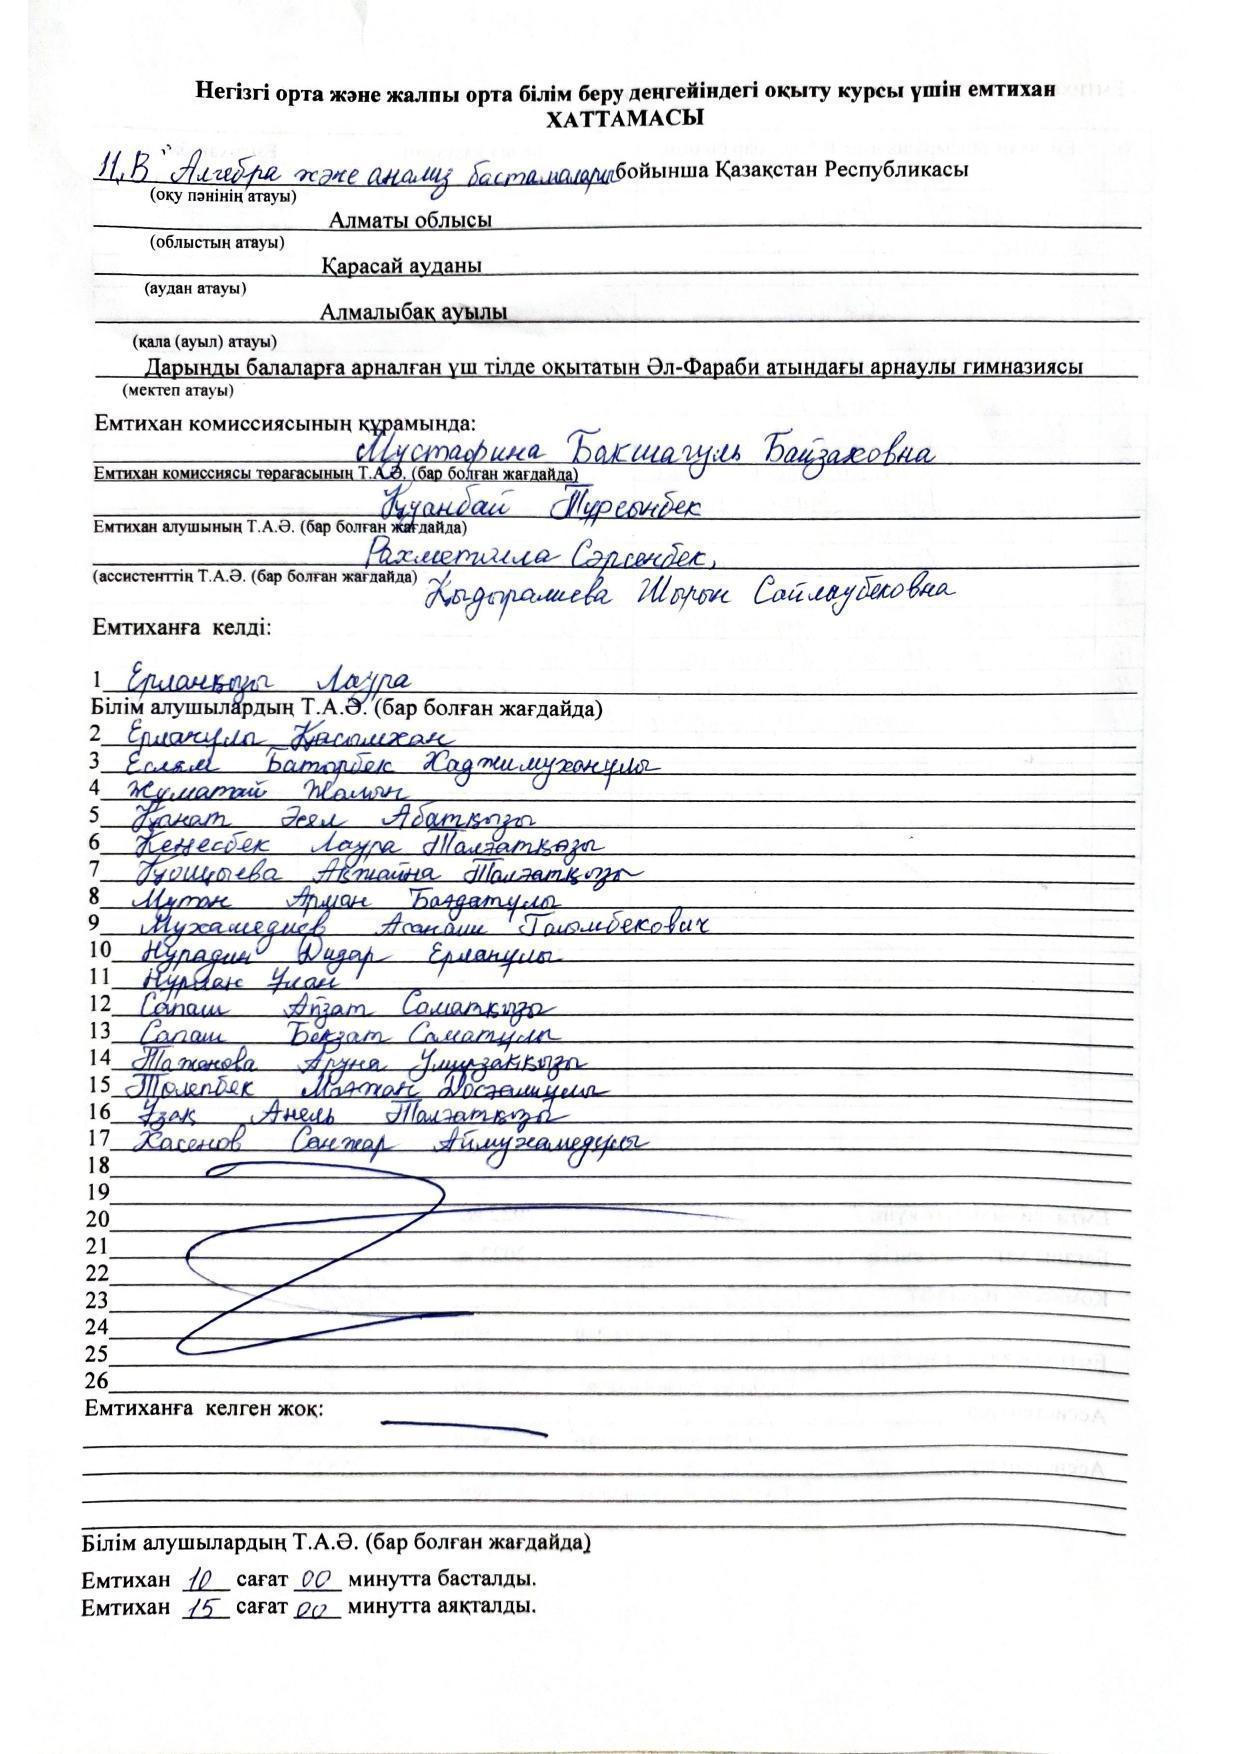 Негізгі орта және жалпы орта білім беру деңгейіндегі оқыту курсы үшін емтихан
ХАТТАМАСЫ
11 "В" Алгебра және анализ бастамалары бойынша Қазақстан Республикасы
(оқу пәнінің атауы)
Алматы облысы
(облыстың атауы)
Қарасай ауданы
(аудан атауы)
Алмалыбақ ауылы
(қала (ауыл) атауы)
Дарынды балаларға арналған үш тілде оқытатын Әл-Фараби атындағы арнаулы гимназиясы
(мектеп атауы)
Емтихан комиссиясының құрамында:
Мустафина Бакшагуль Байзаковна
Емтихан комиссиясы төрағасының Т.А.Ә. (бар болған жағдайда)
Қуанбай Тұрсынбек
Емтихан алушының Т.А.Ә. (бар болған жағдайда)
Рахметилла Сәрсенбек,
(ассистенттің Т.А.Ә. (бар болған жағдайда)
Қыдыралиева Шырын Сайлаубековна
Емтиханға келді:
1 Ерланқызы Лаура
Білім алушылардың Т.А.Ә. (бар болған жағдайда)
2 Ерланұлы Қасымхан
3 Еслям Батырбек Хаджимуханұлы
4 Жұматай Жалын
5 Қанат Әсел Абатқызы
6 Кеңесбек Лаура Талғатқызы
7 Ақжайна Талғатқызы
8 Мұтан Арман Бағдатұлы
9 Мухамедиев Асанали Голымбекович
10 Нұрадин Дидар Ерланұлы
11 Нұрлан Ұлан
12 Сапаш Айзат Саматқызы
13 Сапаш Бекзат Саматұлы
14 Тажанова Аруна Умирзаққызы
15 Төлепбек Мағжан Досғалиұлы
16 Ұзақ Анель Талғатқызы
17 Хасенов Санжар Аймухамедұлы
18
19
20
21
22
23
24
25
26
Емтиханға келген жоқ:
Білім алушылардың Т.А.Ә. (бар болған жағдайда)
Емтихан 10 сағат 00 минутта басталды.
Емтихан 15 сағат 00 минутта аяқталды.